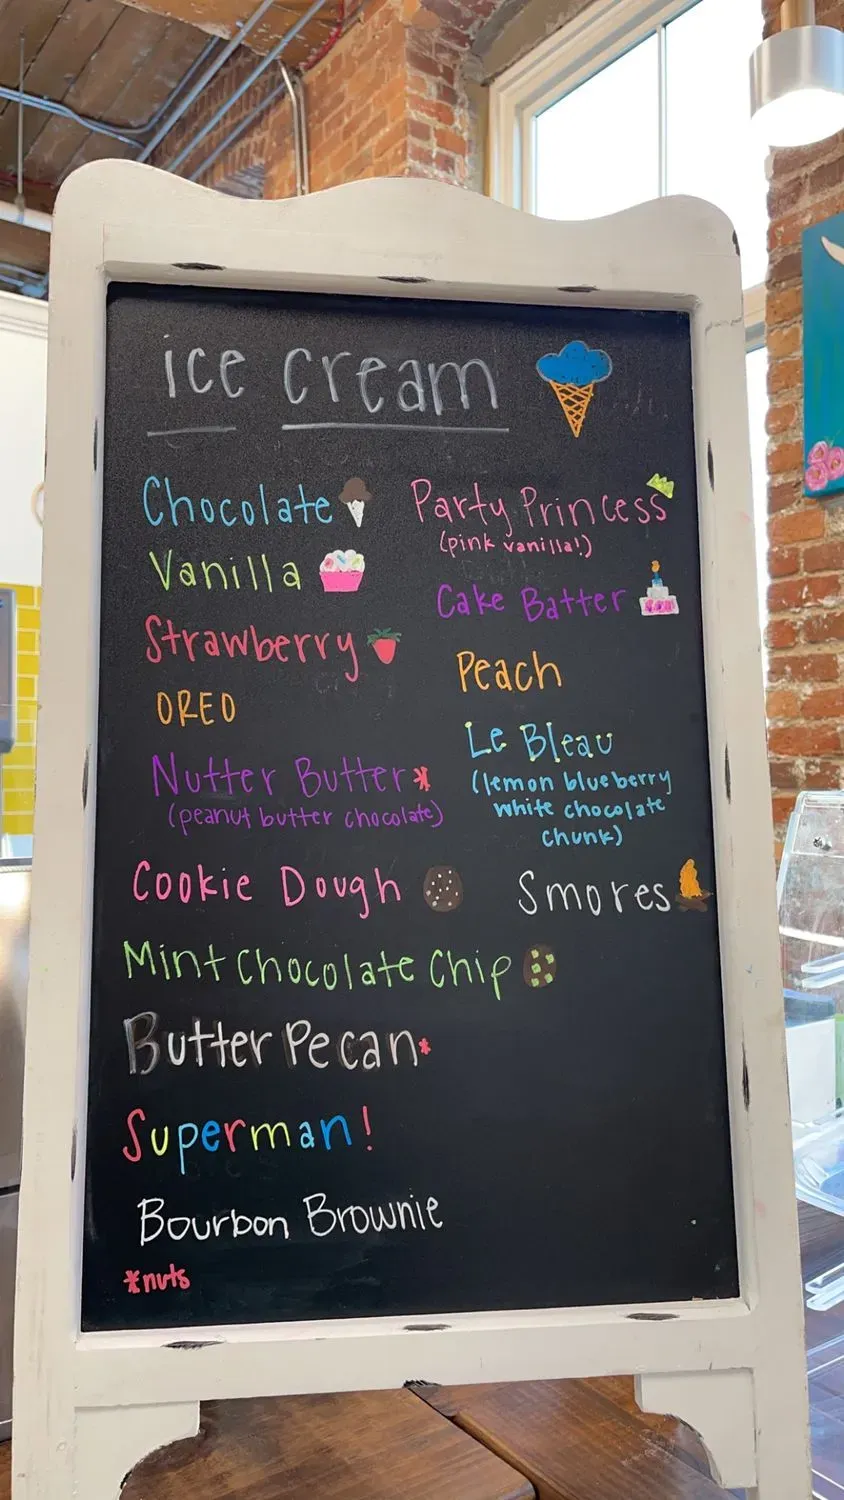 ice cream
Chocolate
Vanilla
Strawberry
OREO
Nutter Butter*
(peanut butter chocolate)
Cookie Dough
Mint Chocolate Chip
Butter Pecan*
Superman!
Bourbon Brownie
*nuts
Party Princess
(pink vanilla!)
Cake Batter
Peach
Le Bleau
(lemon blueberry
white chocolate
chunk)
Smores